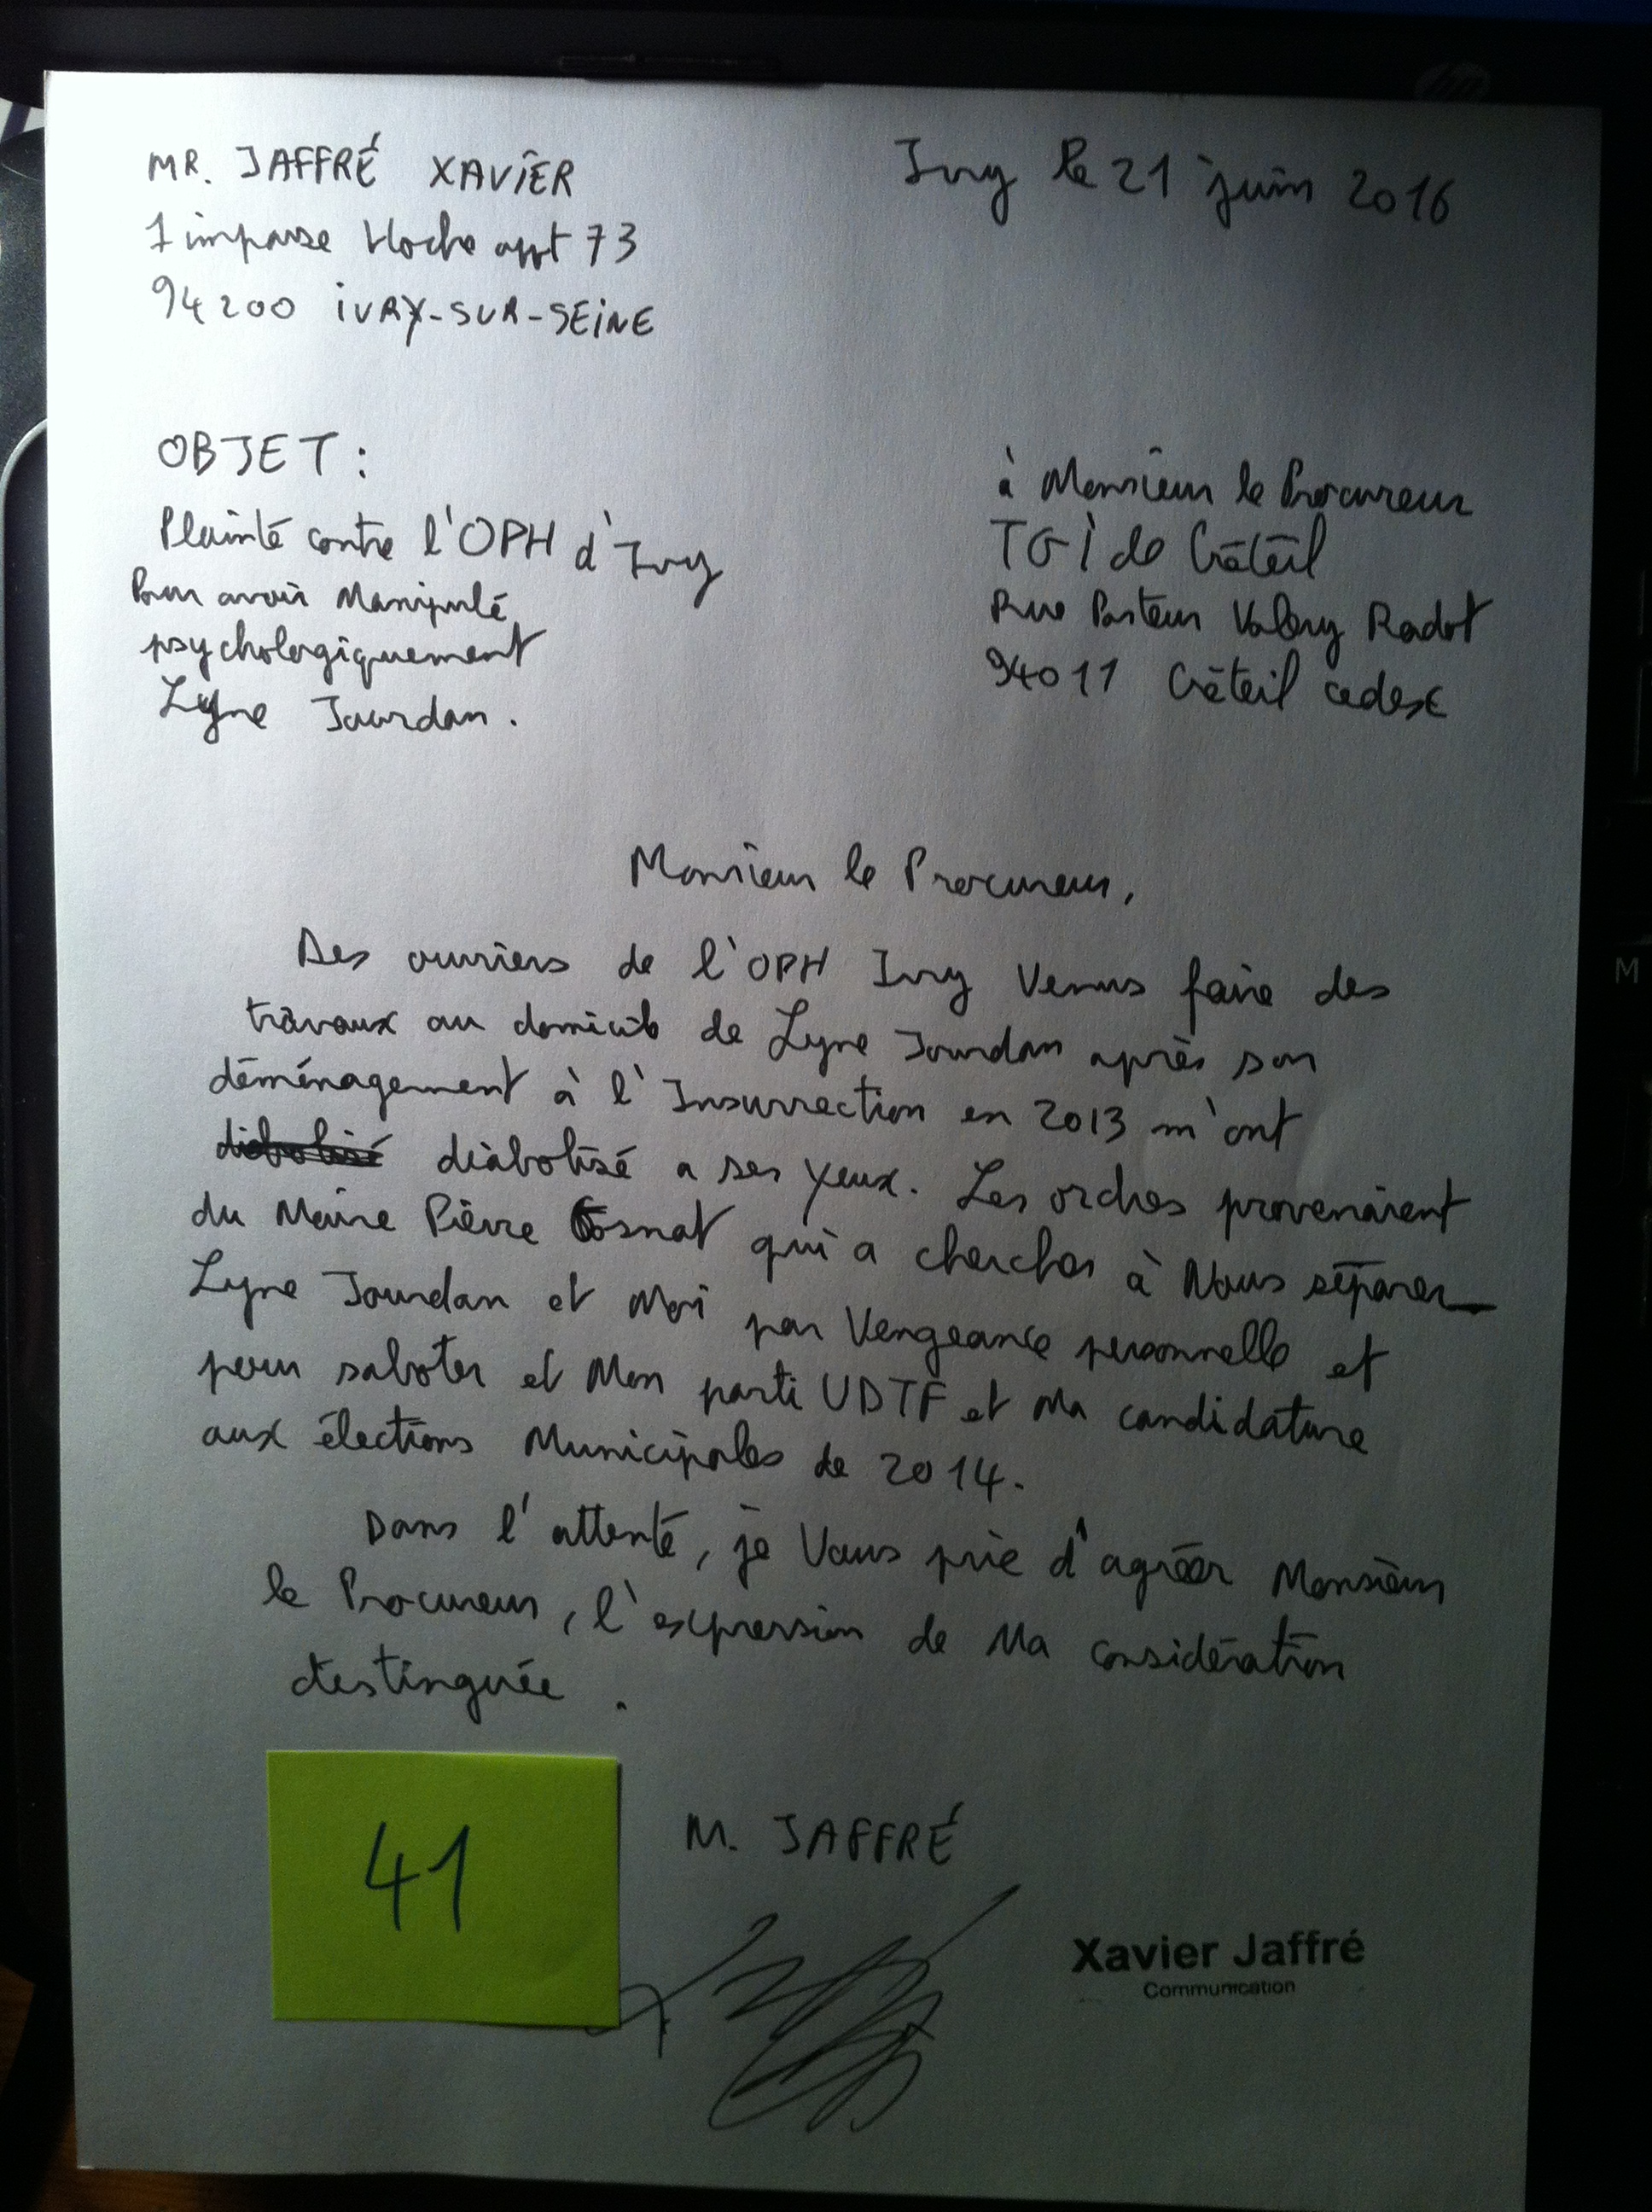 MR. JAFFRÉ XAVIER
Ivry le 21 juin 2016
1 impasse Hoche appt 73
94200 IVRY-SUR-SEINE
OBJET :
Plainte contre l'OPH d'Ivry
Pour avoir Manipulé
psychologiquement
Lyne Jourdan.
à Monsieur le Procureur
TGI de Créteil
Rue Pasteur Valery Radot
94011 Créteil cedex
Monsieur le Procureur,
Des ouvriers de l'OPH Ivry Venus faire des
travaux au domicile de Lyne Jourdan après son
déménagement à l'Insurrection en 2013 m'ont
diabolisé diabolisé a ses yeux. Les ordres provenaient
du Maire Pierre Gosnat qui a cherches à Nous séparer
Lyne Jourdan et Moi par Vengeance personnelle et
pour saboter et Mon parti UDTF et Ma candidature
aux élections Municipales de 2014.
Dans l'attente, je Vous prie d'agréer Monsieur
le Procureur, l'expression de Ma considération
destinguée.
41
M. JAFFRÉ
Xavier Jaffré
Communication